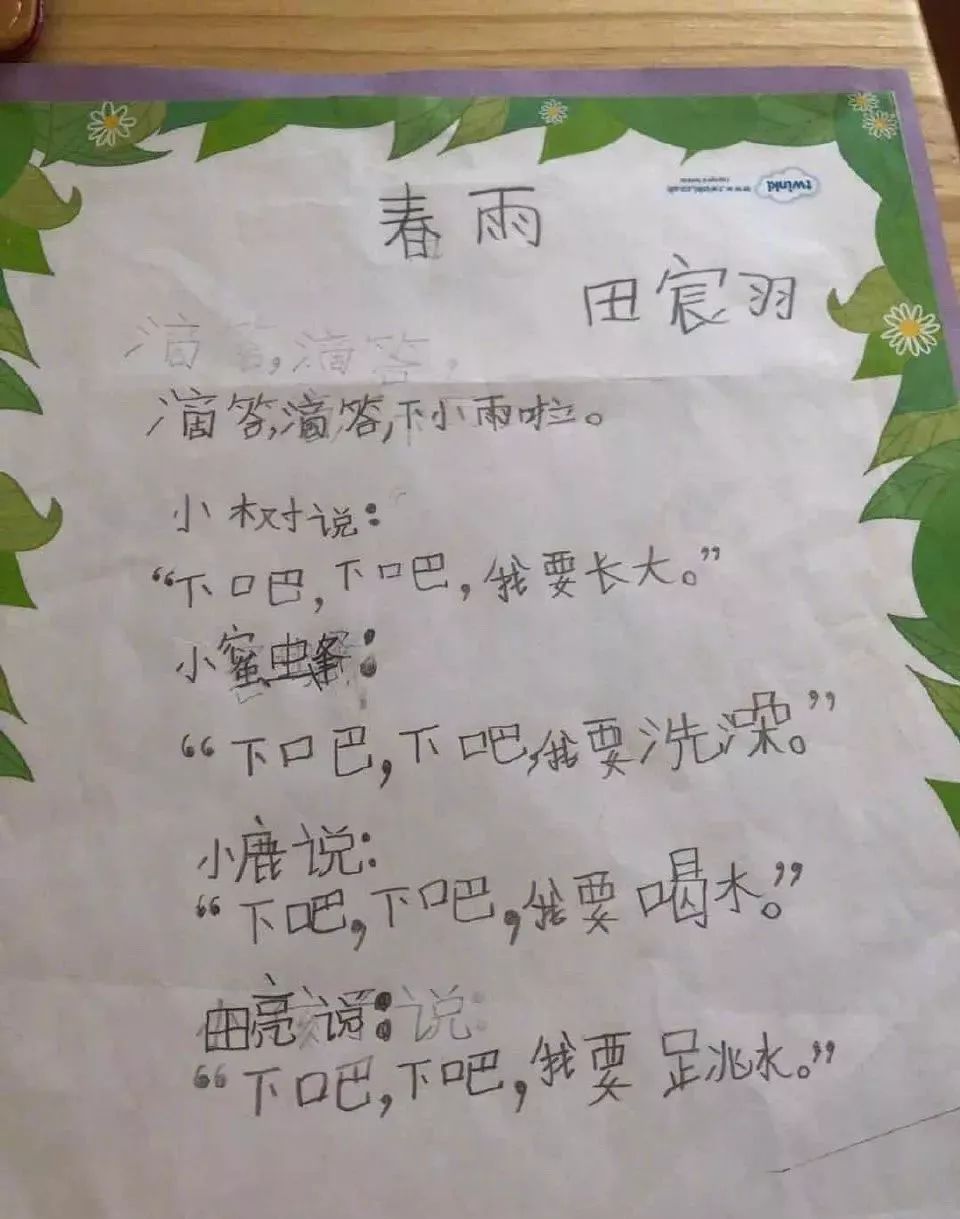 春雨
twinkl
www.twinkl.co.uk
田宸羽
滴答,滴答,
滴答,滴答,下小雨啦。
小树说：
“下吧,下吧,我要长大。”
小蜜蜂：
“下吧,下吧,我要洗澡。”
小鹿说：
“下吧,下吧,我要喝水。”
田亮说：说：
“下吧,下吧,我要跳水。”